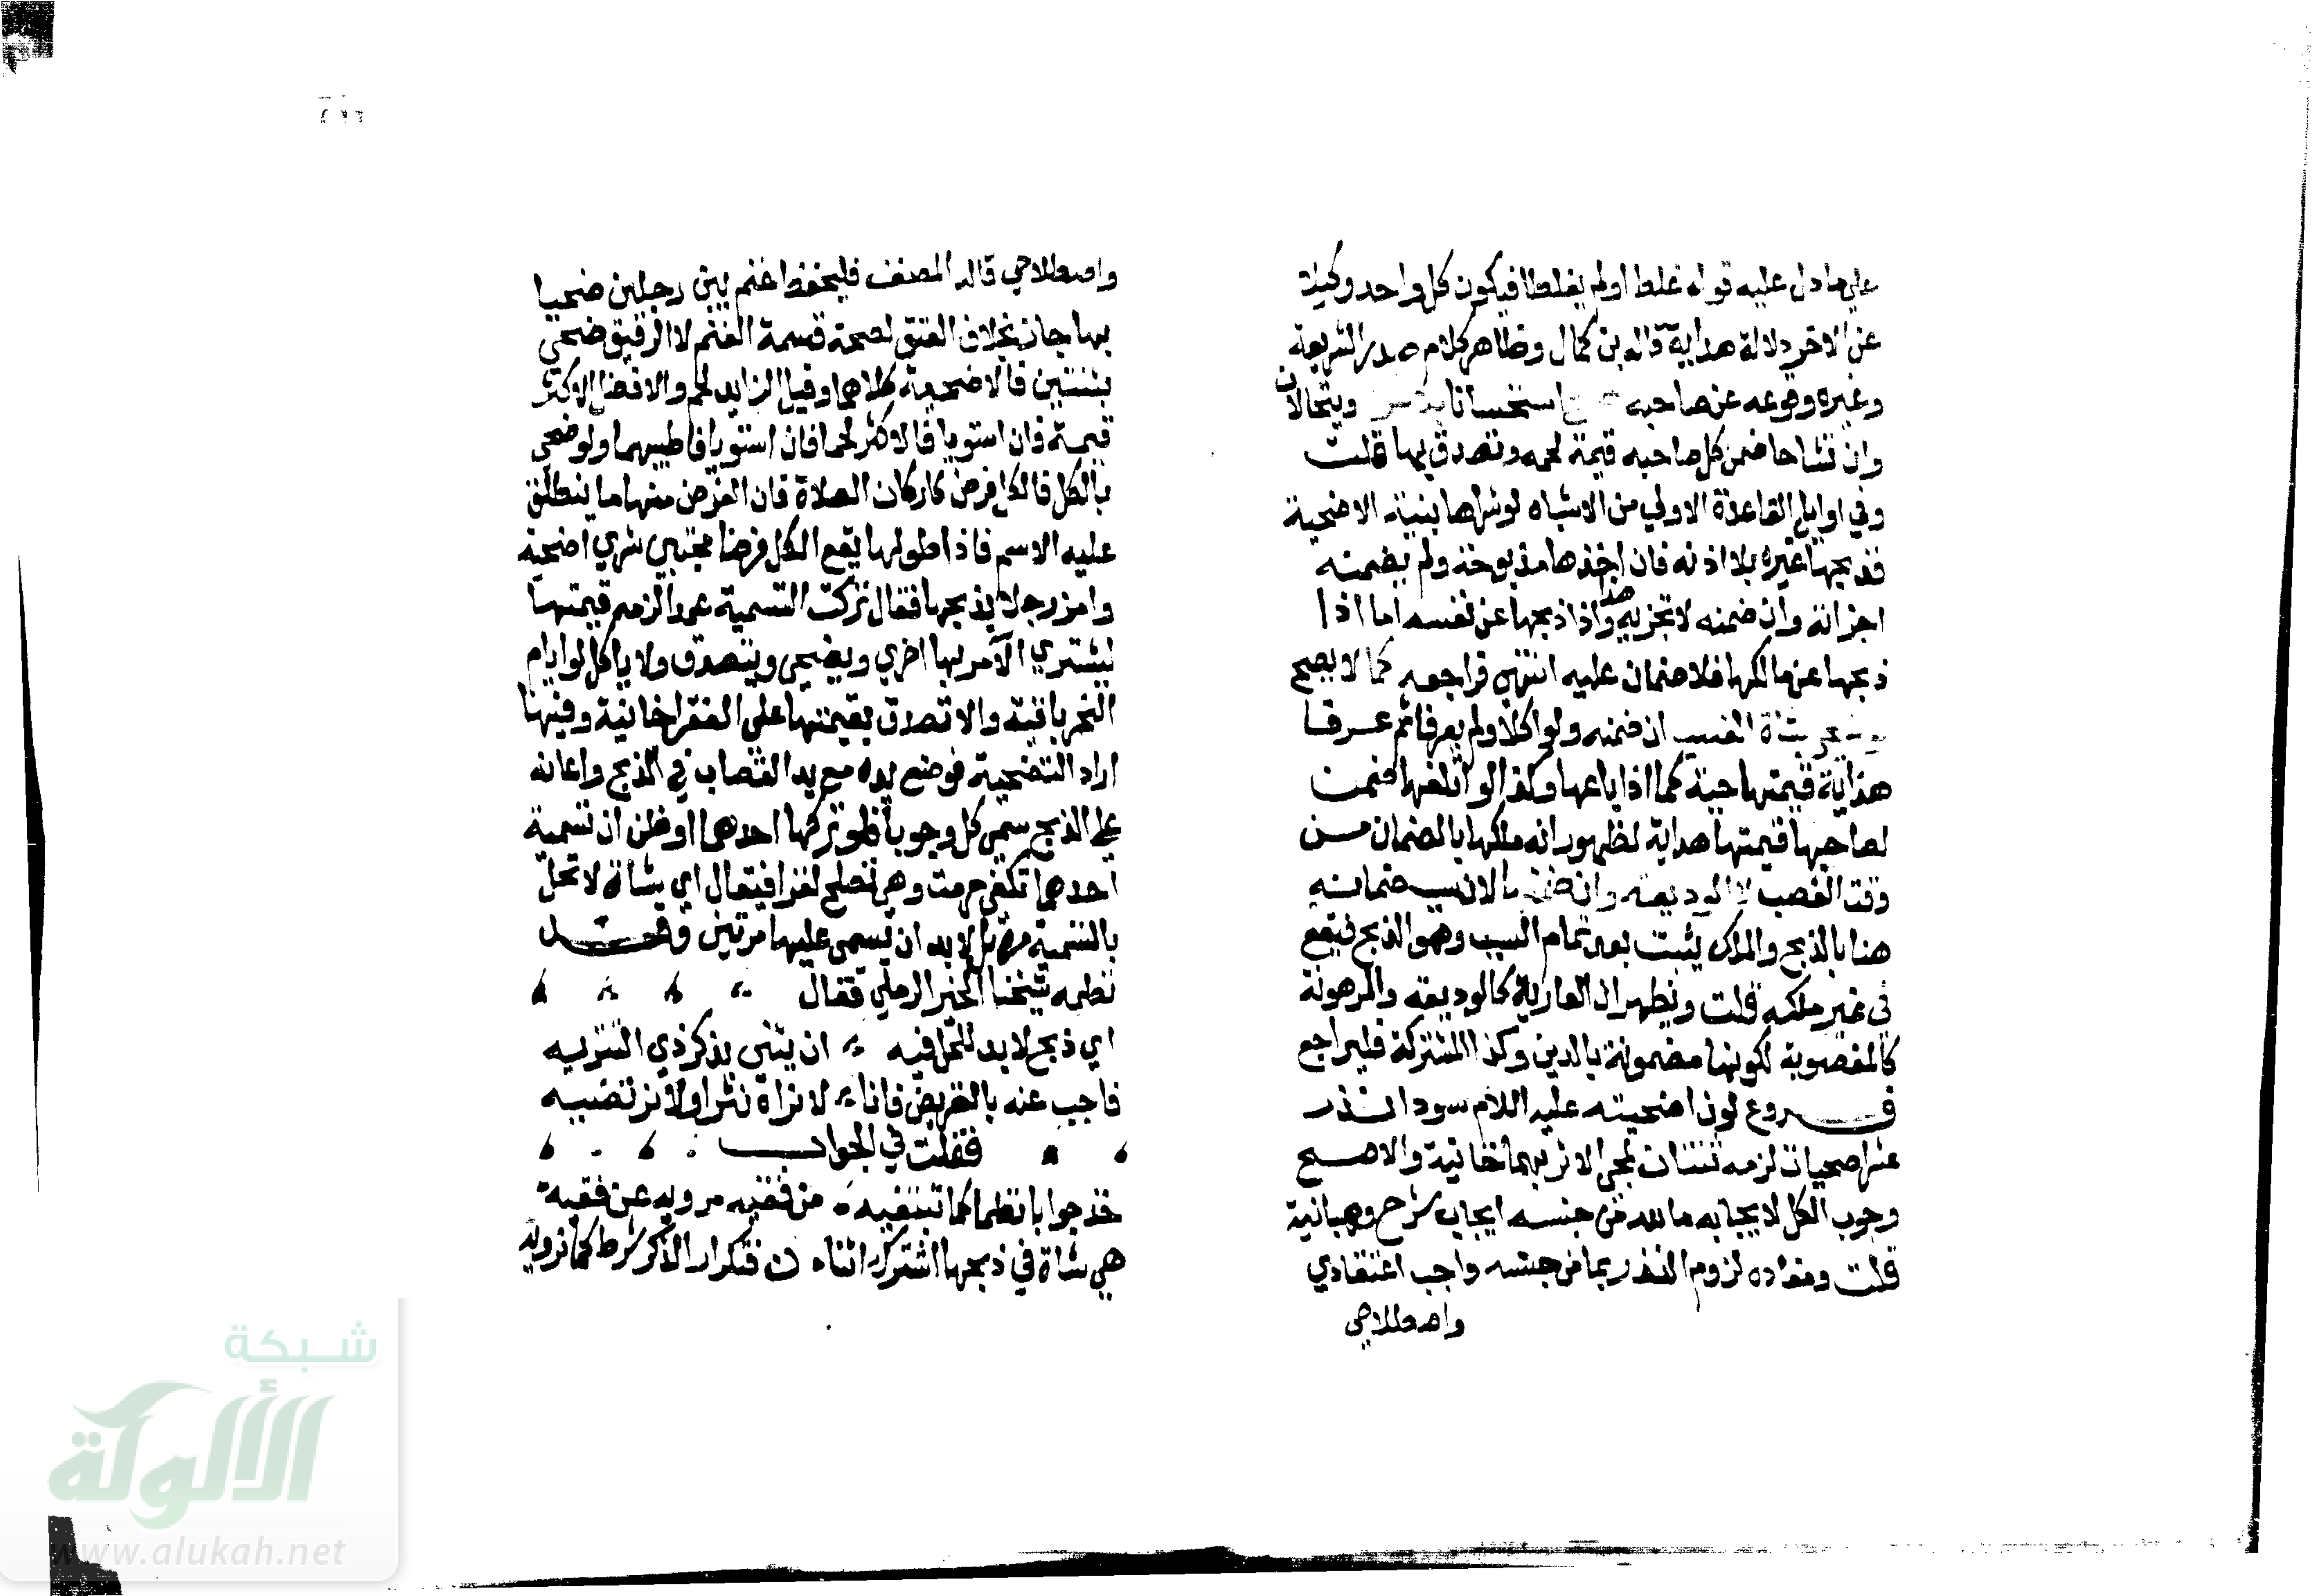 على ما دل عليه قوله غلطا او لم يغلطا فيكون كل واحد وكيلا
عن الاخر دلالة هداية قاله بن كمال وظاهر كلام صدر الشريعة
وغيره وقوعه عن صاحبه استحسانا ويتحالان
وان تشاحا ضمن كل صاحبه قيمة لحمه وتصدق بها قلت
وفي اوايل القاعدة الاولي من الاشباه لو شراها بنية الاضحية
فذبحها غيره بلا اذنه فان اخذها مذبوحة ولم يضمنه
اجزاته وان ضمنه لا تجزيه وهذا اذا ذبحها عن نفسه اما اذا
ذبحها عن مالكها فلا ضمان عليه انتهي فراجعه كما لا يصح
بشاة الغصب ان ضمنه ولو اكلا ولم يعرفا ثم عرفا
هداية قيمتها حية كما اذا باعها وكذا لو اتلفها ضمن
لصاحبها قيمتها هداية لظهور انه ملكها بالضمان من
وقت الغصب لا الوديعة وان ضمنها لان سبب ضمانه
هنا بالذبح والملك يثبت بعد تمام السبب وهو الذبح فيقع
في غير ملكه قلت ويظهر ان العارية كالوديعة والمرهونة
كالمغصوبة لكونها مضمونة بالدين وكذا المشتركة فليراجع
فروع لون اضحيته عليه السلام سودا نذر
عشر اضحيات لزمه ثنتان لمجي الاثر بهما خانية والاصح
وجوب الكل لايجابه ما لله من جنسه ايجاب شرح وهبانية
قلت ومفاده لزوم النذر بما من جنسه واجب اعتقادي
واصطلاحي
واصطلاحي قاله المصنف فليحفظ غنم بين رجلين ضحيا
بها جاز بخلاف العتق لصحة قسمة الغنم لا الرقيق ضحي
بثنتين فالاضحية كلاهما وقيل الزايد لحم والافضل الاكثر
قيمة فان استويا فالاكثر لحما فان استويا فاطيبهما ولو ضحي
بالكل فالكل فرض كاركان الصلاة فان الفرض منها ما ينطلق
عليه الاسم فاذا طولها يقع الكل فرضا مجتبي شري اضحية
وامر رجلا بذبحها فقال تركت التسمية عمدا لزمه قيمتها
ليشتري الآمر بها اخري ويضحي ويتصدق ولا ياكل لو ايام
النحر باقية والا تصدق بقيمتها على الفقرا خانية وفيها
اراد التضحية فوضع يده مع يد القصاب في الذبح واعانه
على الذبح سمى كل وجوبا فلو تركها احدهما او ظن ان تسمية
احدهما تكفي حرمت وهي تصلح لغزا فيقال اي شاة لا تحل
بالتسمية مرة بل لا بد ان يسمى عليها مرتين وقد
نظمه شيخنا الخير الرملي فقال
اي ذبح لا بد للحل فيه ان يثنى بذكر ذي التنزيه
فاجب عنه بالقريض فانا لا نراه نثرا ولا نرتضيه
فقلت في الجواب
خذ جوابا نظما كما تبتغيه من فقيه مرويه عن فقيه
هي شاة في ذبحها اشتراك اثنان فتكرار الذكر شرط كما نرويه
شبكة
الألوكة
www.alukah.net